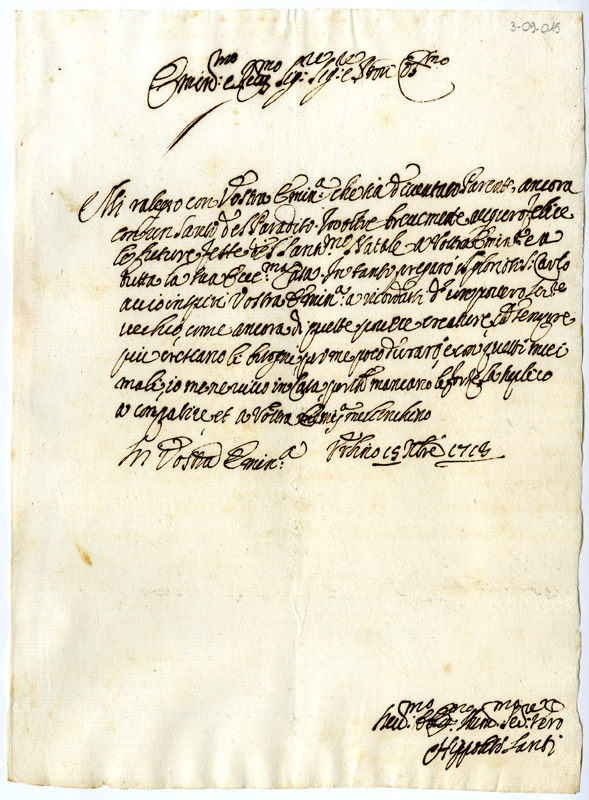 3-09-015
Emin.mo e Rev.mo Sig.re Sig.re e Pron Col.mo
Mi ralegro con Vostra Emin.a che sia diventato Parente ancora
con un Santo del Paradiso. Inoltre brevemente auguro felice
le future feste del Sant.mo Natale a Vostra Emin.a e a
tutta la sua Ecc.ma Casa. In tanto pregarò il glorioso S. Carlo
acciò inspiri Vostra Emin.a a ricordarsi d'un povero
vecchio, come ancora di quelle povere creature,
più crescano li bisogni per me poco durarò con quelli miei
mali, io me ne vivo in Casa perché mancano le forze, la suplico
a conpatire, et a Vostra Emin.a m'inchino
Di Vostra Emin.a Urbino 15 Xbre 1712
Hum. Ser. vero
Hippolito Santi